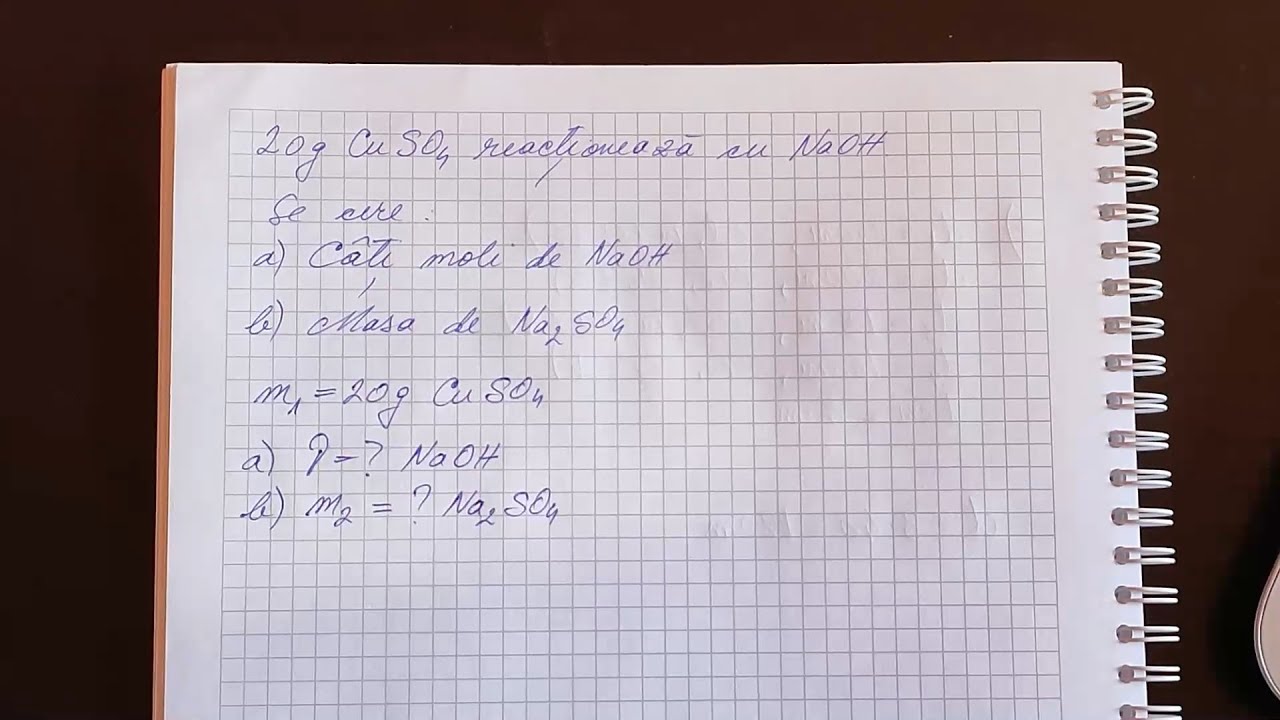 20g CuSO₄ reacționează cu NaOH
Se cere:
a) Câți moli de NaOH
b) Masa de Na₂SO₄
m₁ = 20g CuSO₄
a) ν = ? NaOH
b) m₂ = ? Na₂SO₄